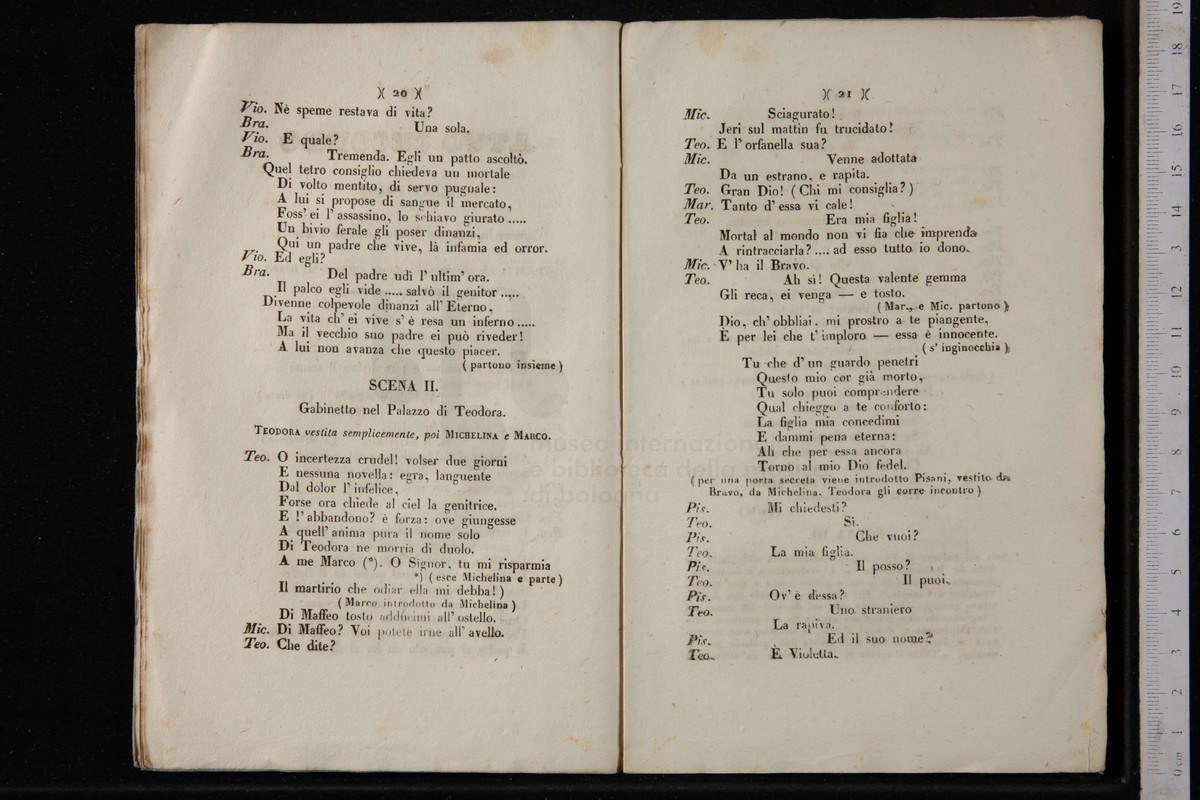 )( 20 )(
Vio. Nè speme restava di vita?
Bra. Una sola.
Vio. E quale?
Bra. Tremenda. Egli un patto ascoltò.
Quel tetro consiglio chiedeva un mortale
Di volto mentito, di servo pugnale:
A lui si propose di sangue il mercato,
Foss' ei l' assassino, lo schiavo giurato .....
Un bivio ferale gli poser dinanzi,
Qui un padre che vive, là infamia ed orror.
Vio. Ed egli?
Bra. Del padre udì l' ultim' ora.
Il palco egli vide ..... salvò il genitor .....
Divenne colpevole dinanzi all' Eterno,
La vita ch' ei vive s' è resa un inferno .....
Ma il vecchio suo padre ei può riveder!
A lui non avanza che questo piacer.
( partono insieme )
SCENA II.
Gabinetto nel Palazzo di Teodora.
TEODORA vestita semplicemente, poi MICHELINA e MARCO.
Teo. O incertezza crudel! volser due giorni
E nessuna novella: egra, languente
Dal dolor l' infelice,
Forse ora chiede al ciel la genitrice.
E l' abbandono? è forza: ove giungesse
A quell' anima pura il nome solo
Di Teodora ne morria di duolo.
A me Marco (*). O Signor, tu mi risparmia
*) ( esce Michelina e parte )
Il martirio che odiar ella mi debba! )
( Marco introdotto da Michelina )
Di Maffeo tosto adducimi all' ostello.
Mic. Di Maffeo? Voi potete irne all' avello.
Teo. Che dite?
)( 21 )(
Mic. Sciagurato!
Jeri sul mattin fu trucidato!
Teo. E l' orfanella sua?
Mic. Venne adottata
Da un estrano, e rapita.
Teo. Gran Dio! ( Chi mi consiglia? )
Mar. Tanto d' essa vi cale!
Teo. Era mia figlia!
Mortal al mondo non vi fia che imprenda
A rintracciarla? .... ad esso tutto io dono.
Mic. V' ha il Bravo.
Teo. Ah sì! Questa valente gemma
Gli reca, ei venga — e tosto.
( Mar., e Mic. partono )
Dio, ch' obbliai, mi prostro a te piangente,
È per lei che t' imploro — essa è innocente.
( s' inginocchia )
Tu che d' un guardo penetri
Questo mio cor già morto,
Tu solo puoi comprendere
Qual chieggo a te conforto:
La figlia mia concedimi
E dammi pena eterna:
Ah che per essa ancora
Torno al mio Dio fedel.
( per una porta secreta viene introdotto Pisani, vestito da
Bravo, da Michelina. Teodora gli corre incontro )
Pis. Mi chiedesti?
Teo. Sì.
Pis. Che vuoi?
Teo. La mia figlia.
Pis. Il posso?
Teo. Il puoi.
Pis. Ov' è dessa?
Teo. Uno straniero
La rapiva.
Pis. Ed il suo nome?
Teo. È Violetta.
museo internazion
e biblioteca della m
di bologna
0 cm 1 2 3 4 5 6 7 8 9 10 11 12 13 14 15 16 17 18 19